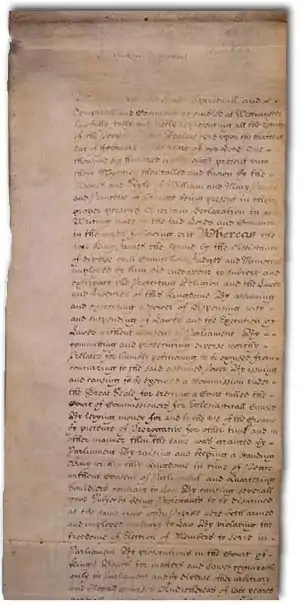 Lords Spirituall and
Temporall and Commons assembled at Westminster
lawfully fully and freely representing all the Estates
of the People of this Realme did upon the thirteenth
day of February in the yeare of our Lord One
thousand six hundred eighty eight present unto
their Majesties then called and known by the
Names and Stile of William and Mary Prince
and Princesse of Orange being present in their
proper persons a certain Declaration in
Writeing made by the said Lords and Commons
in the words following viz Whereas the
late King James the Second by the assistance
of diverse evill Councellors Judges and Ministers
imployed by him did endeavor to subvert and
extirpate the Protestant Religion and the Lawes
and Liberties of this Kingdome By assuming
and exerciseing a Power of dispensing with
and suspending of Lawes and the Execution of
Lawes without consent of Parliament By
committing and prosecuting diverse worthy
Prelates for humbly petitioning to be excused from
concurring to the said assumed Power By issuing
and causing to be executed a Commission under
the Great Seale for erecting a Court called the
Court of Commissioners for Ecclesiasticall Causes
By levying money for and to the use of the Crowne
by pretence of Prerogative for other time and in
other manner then the same was granted by
Parliament By raising and keeping a Standing
Army within this Kingdome in time of Peace
without Consent of Parliament and Quartering
Souldiers contrary to Law By causing severall
good Subjects being Protestants to be disarmed
at the same time when Papists were both armed
and imployed contrary to Law By violating the
freedome of Election of Members to serve in
Parliament By prosecutions in the Court of
Kings Bench for matters and causes cognizable
only in Parliament and by diverse other arbitrary
and illegall courses And whereas of late yeares